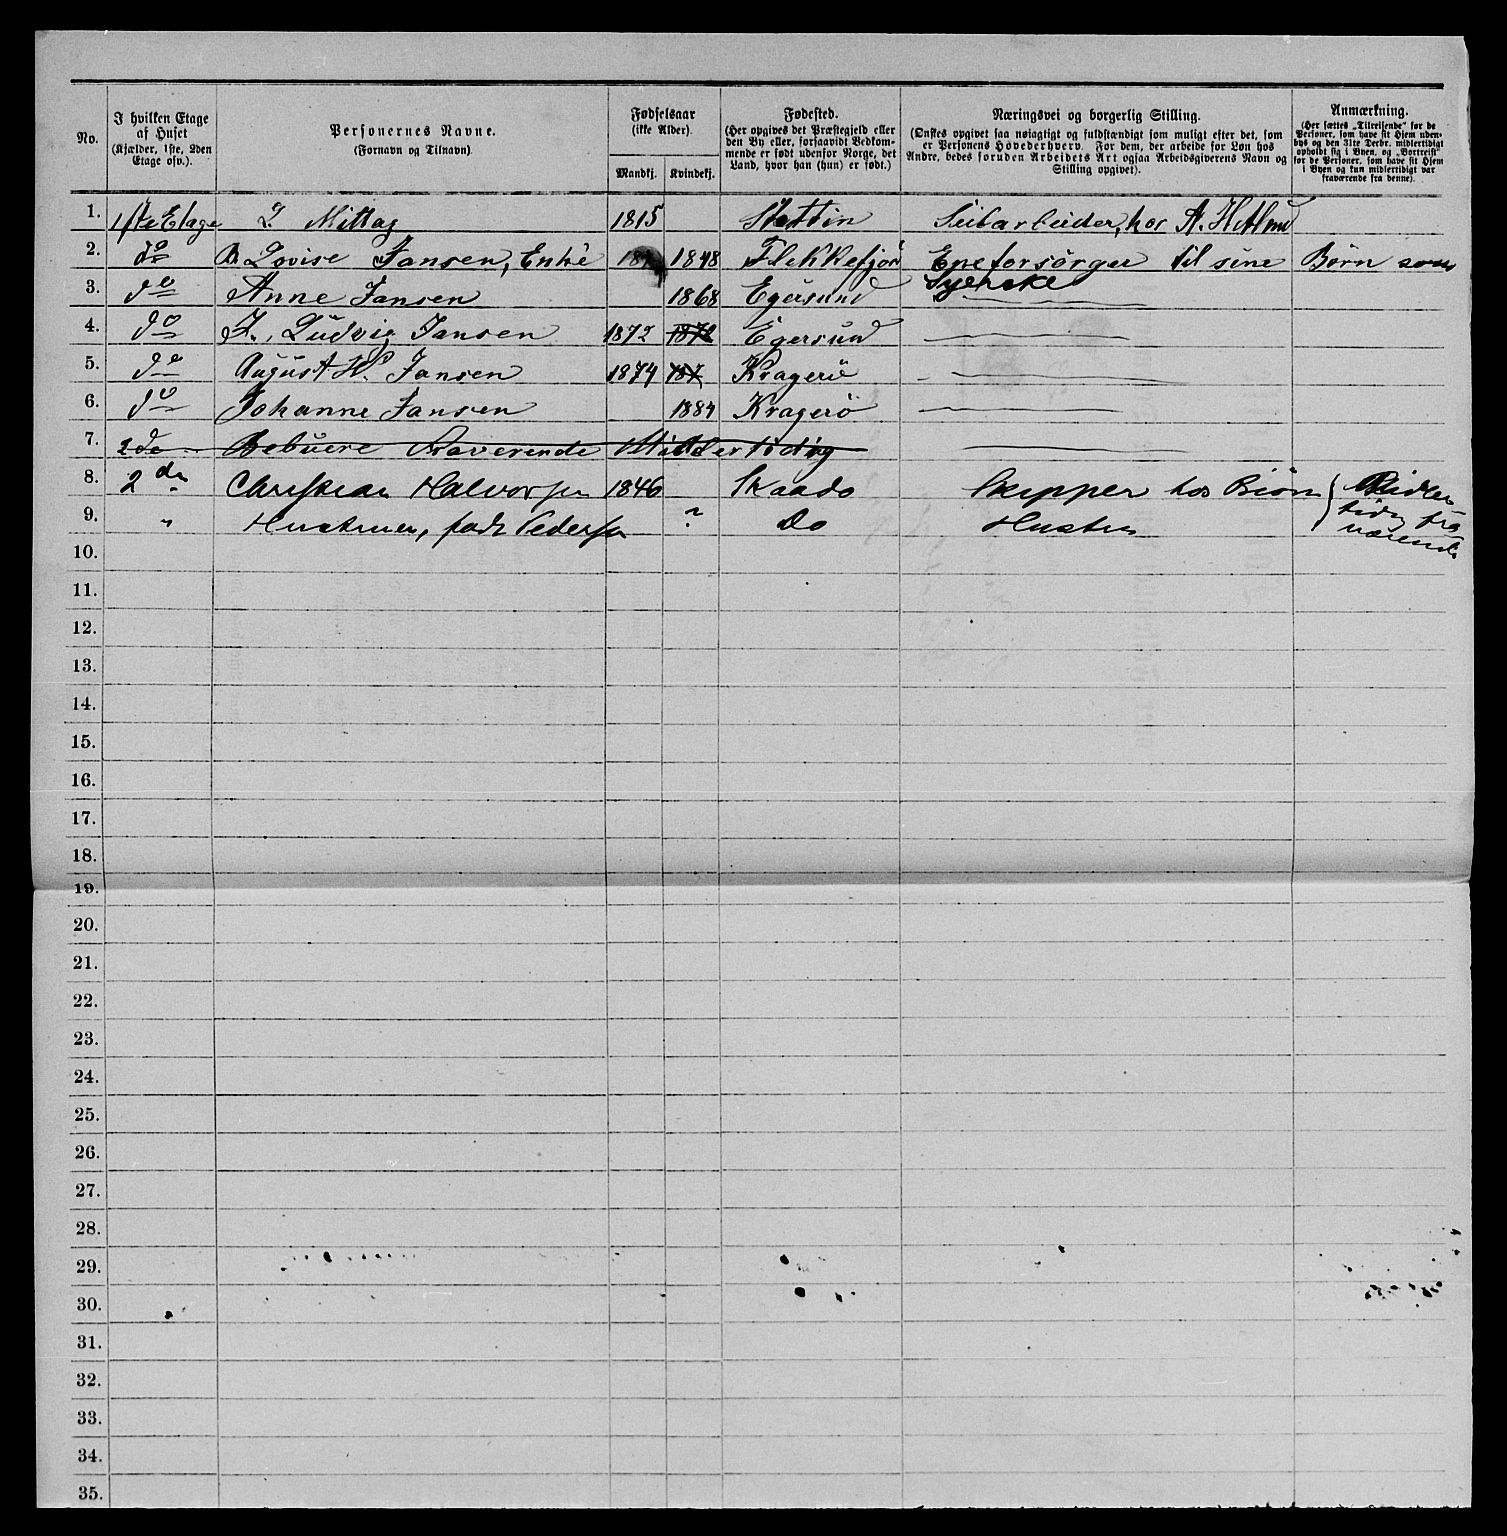 No.
I hvilken Etage
af Huset
(Kjælder, 1ste, 2den
Etage osv.).
Personernes Navne.
(Fornavn og Tilnavn).
Fødselsaar
(ikke Alder).
Mandkj.
Kvindekj.
Fødested.
(Her opgives det Præstegjeld eller
den By eller, forsaavidt Vedkom-
mende er født udenfor Norge, det
Land, hvor han (hun) er født.)
Næringsvei og borgerlig Stilling.
(Ønskes opgivet saa nøiagtigt og fuldstændigt som muligt efter det, som
er Personens Hovederhverv. For dem, der arbeide for Løn hos
Andre, bedes foruden Arbeidets Art ogsaa Arbeidsgiverens Navn og
Stilling opgivet).
Anmærkning.
(Her sættes „Tilreisende" for de
Personer, som have sit Hjem uden-
bys og den 31te Decbr. midlertidigt
opholdt sig i Byen, og „Bortreist"
for de Personer, som have sit Hjem
i Byen og kun midlertidigt var
fraværende fra denne).
1. 1ste Etage L. Mittag 1815 Stettin hos A.
2. do B Lovise Jansen, Enke 1848 Flekkefjor Eneforsörger til sine Börn som
Syerske
3. do Anne Jansen 1868 Egersund
4. do L. Ludvig Jansen 1872 1872 Egersund
5. do August H. Jansen 1874 187 Kragerö
6. do Johanne Jansen 1884 Kragerö
7. 2de Beboere Fraverende Middertidig
8. 2den Christian Halvorsen 1846 Skaado Skipper hos Biörn Midler
9. " Hustruen, født Pedersen ? Do Hustru tidig fra
værende
10.
11.
12.
13.
14.
15.
16.
17.
18.
19.
20.
21.
22.
23.
24.
25.
26.
27.
28.
29.
30.
31.
32.
33.
34.
35.